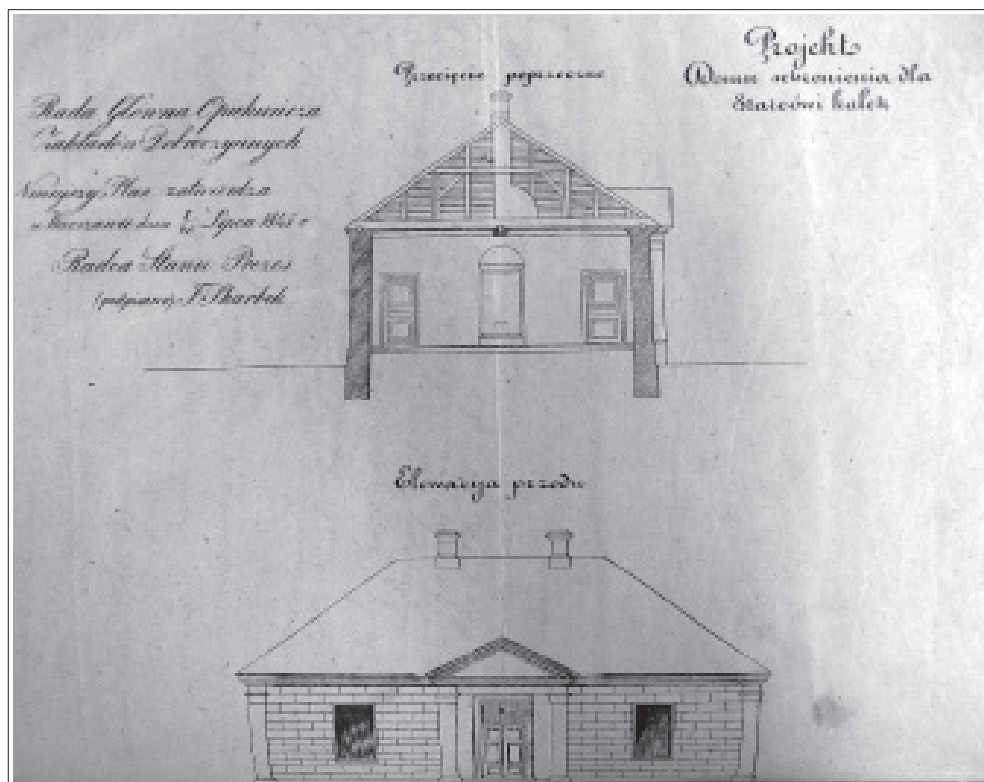 Rada Główna Opiekuńcza
Zakładów Dobroczynnych
Niniejszy Plan zatwierdza
w Warszawie dnia Lipca 184 r
Radca Stanu Prezes
(podpisano) F. Skarbek
Przecięcie poprzeczne
Projekt
Domu schronienia dla
Starców i kalek
Elewacyja przodu